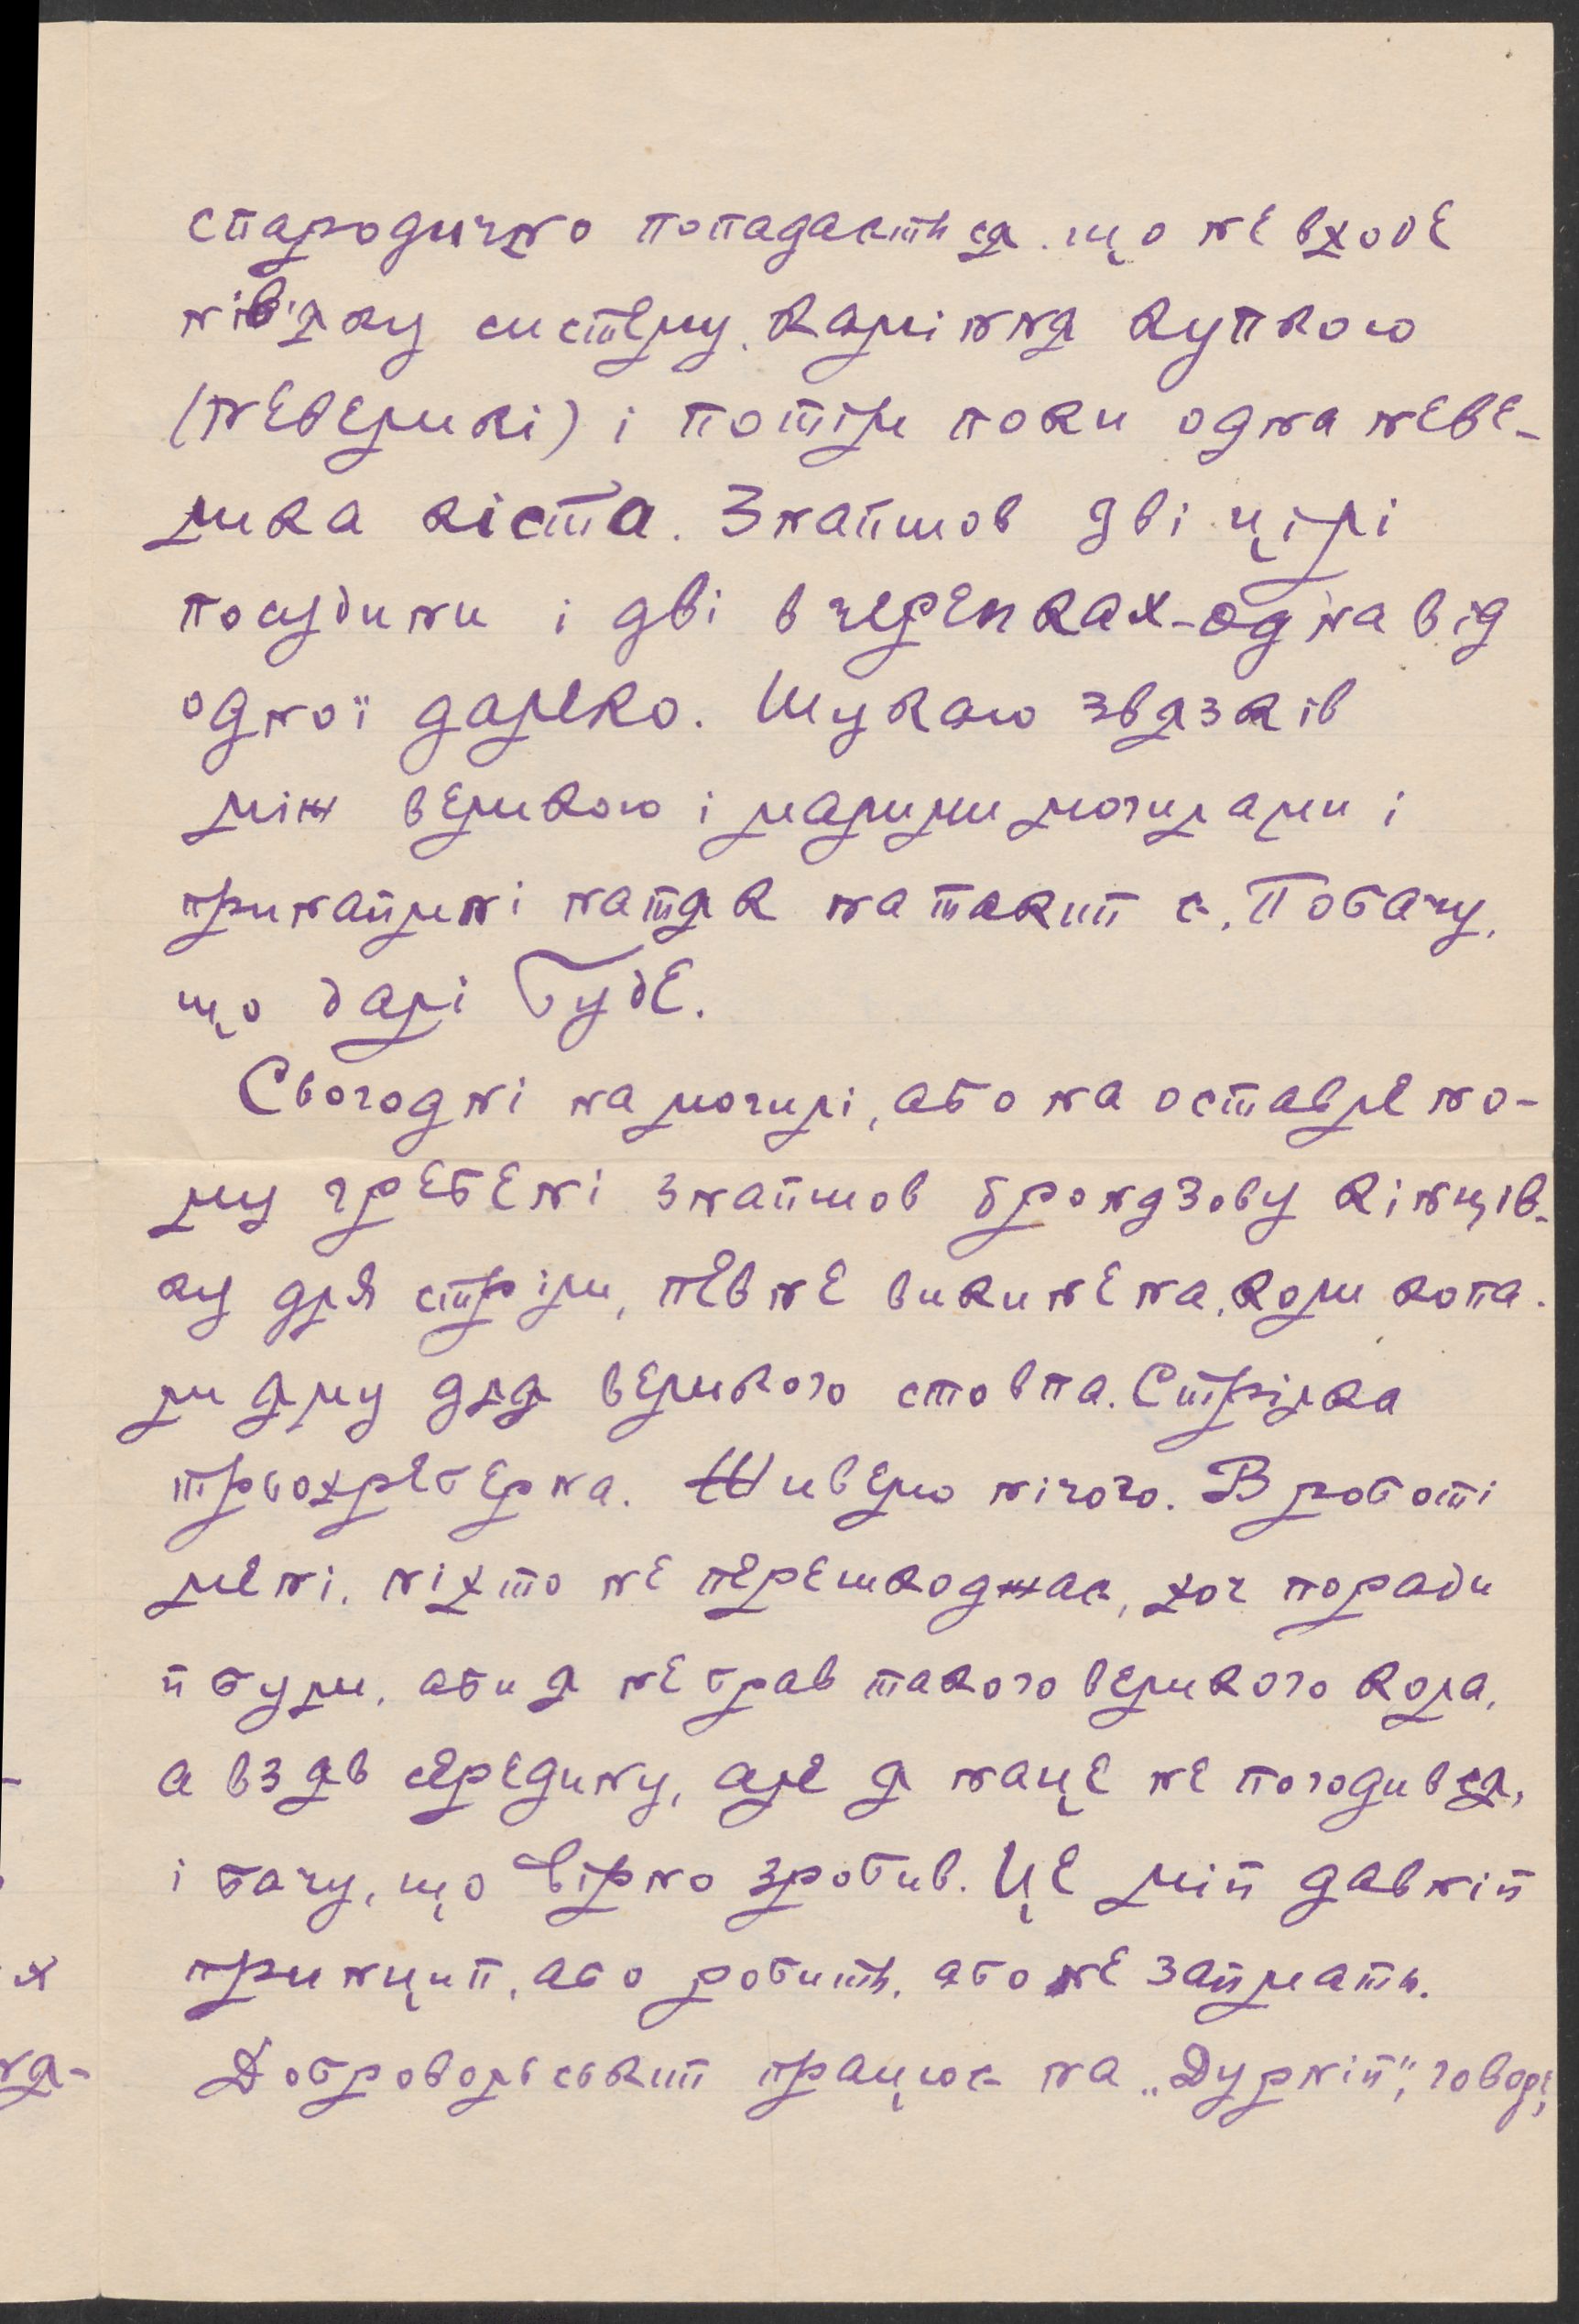 спародично попадається. що не входе
ні в'яку систему. Каміння купкою
(невеликі) і потім поки одна неве-
лика кіста. Знайшов дві цілі
посудини і дві в черепках - одна від
одної далеко. Шукаю звязків
між великою і малими могилами і
принаймні натяк на такий є. Побачу,
що далі буде.
Свогодні на могилі, або на оставлено-
му гребені знайшов брондзову кінців-
ку для стріли, певне викинена, коли копа-
ли яму для великого стовпа. Стрілка
трьохреберна. Живемо нічого. В роботі
мені, ніхто не перешкоджає, хоч поради
й були, аби я не брав такого великого кола,
а взяв середину, але я на це не погодився,
і бачу, що вірно зробив. Це мій давній
принцип, або робить, або не займать.
Добровольський працює на „Дурній", говоре,
-
х
ня-